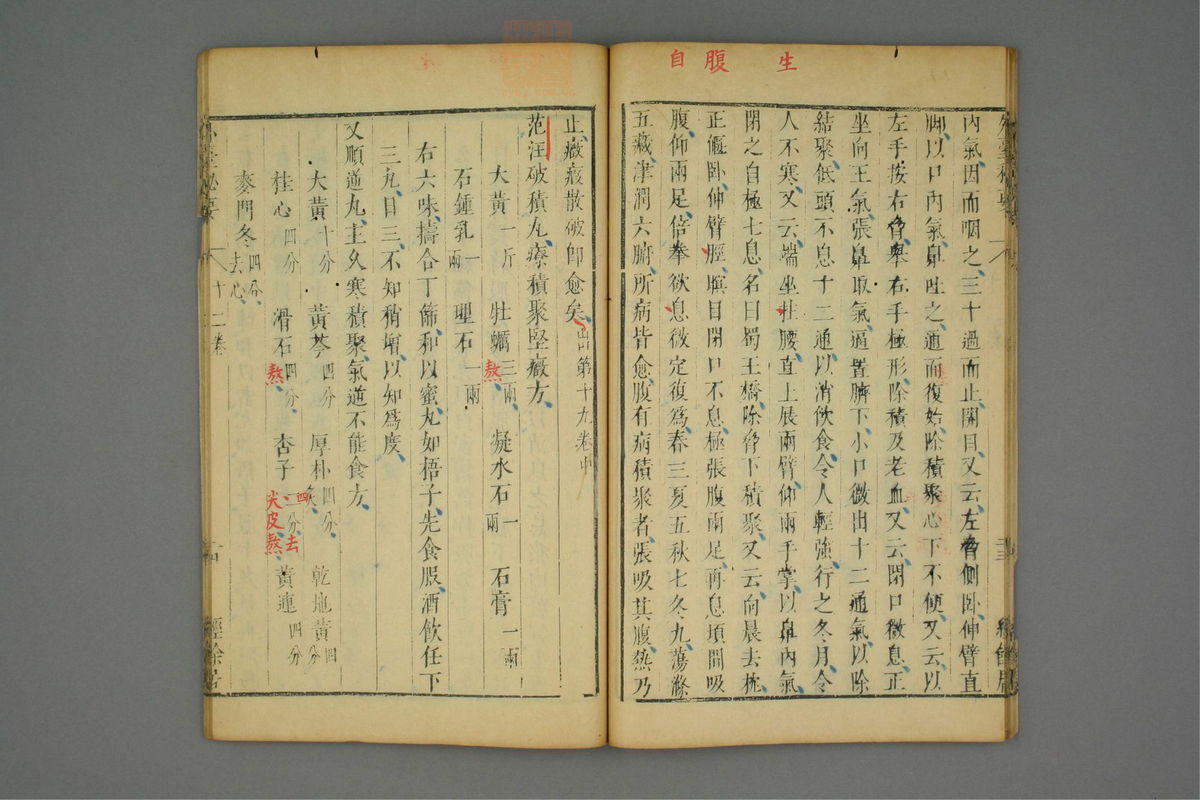 自 腹 生
內氣因而咽之三十過而止開目又云左脅側卧伸臂直
脚以口內氣鼻吐之通而復始除積聚心下不便又云以
左手按右脅舉右手極形除積及老血又云閉口微息正
坐向王氣張鼻取氣逼置臍下小口微出十二通氣以除
結聚低頭不息十二通以消飲食令人輕強行之冬月令
人不寒又云端坐柱腰直上展兩臂仰兩手掌以鼻內氣
閉之自極七息名曰蜀王橋除脅下積聚又云向晨去枕
正偃卧伸臂脛瞑目閉口不息極張腹兩足再息頃間吸
腹仰兩足倍拳欲息微定復為春三夏五秋七冬九蕩滌
五藏津潤六腑所病皆愈腹有病積聚者張吸其腹熱乃
止癥瘕散破即愈矣出第十九卷中
范汪破積丸療積聚堅癥方
大黃一斤 牡蠣三兩熬 凝水石一兩 石膏一兩
石鍾乳一兩 理石一兩
右六味擣合丁篩和以蜜丸如梧子先食服酒飲任下
三丸日三不知稍增以知為度
又順逆丸主久寒積聚氣逆不能食方
大黃十分 黃芩四分 厚朴四分炙 乾地黃四分
桂心四分 滑石四分熬 杏子二分四去尖皮熬 黃連四分
麥門冬四分去心
外臺秘要 十二卷 十四 經餘居